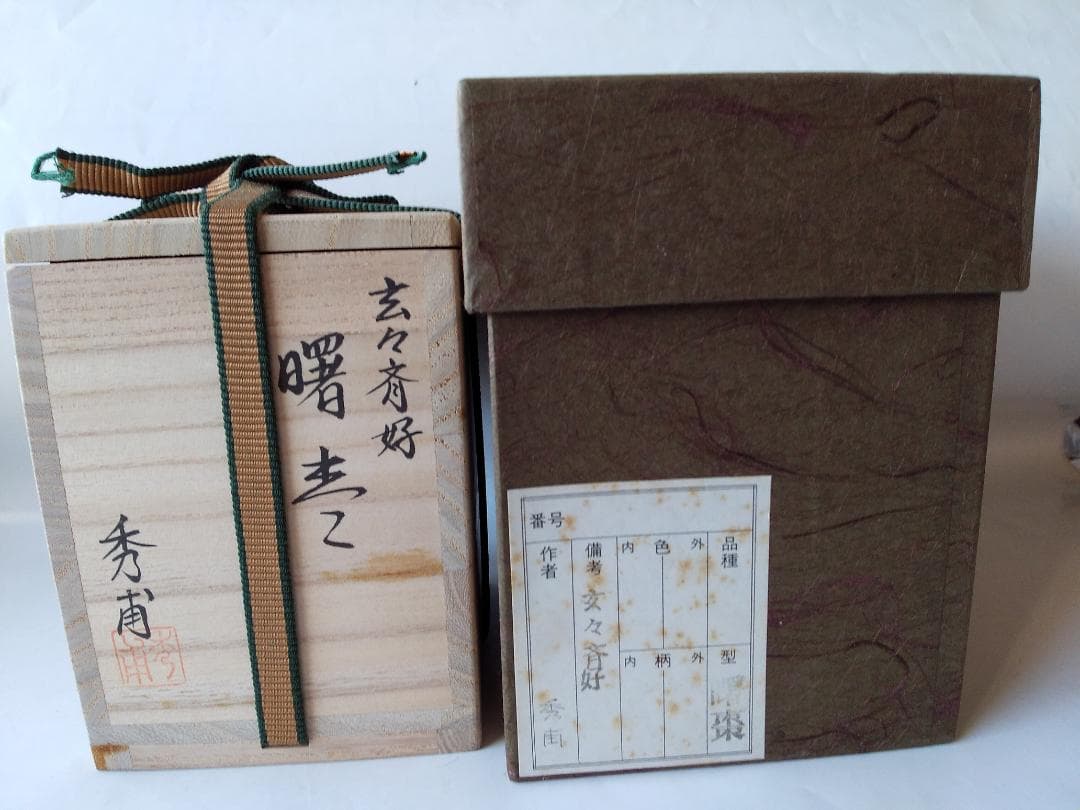 玄々斎好
曙枣
秀甫
秀甫
番号
品種
外 色 内
型 曙棗
外 柄 内
備考 玄々斎好
作者 秀甫